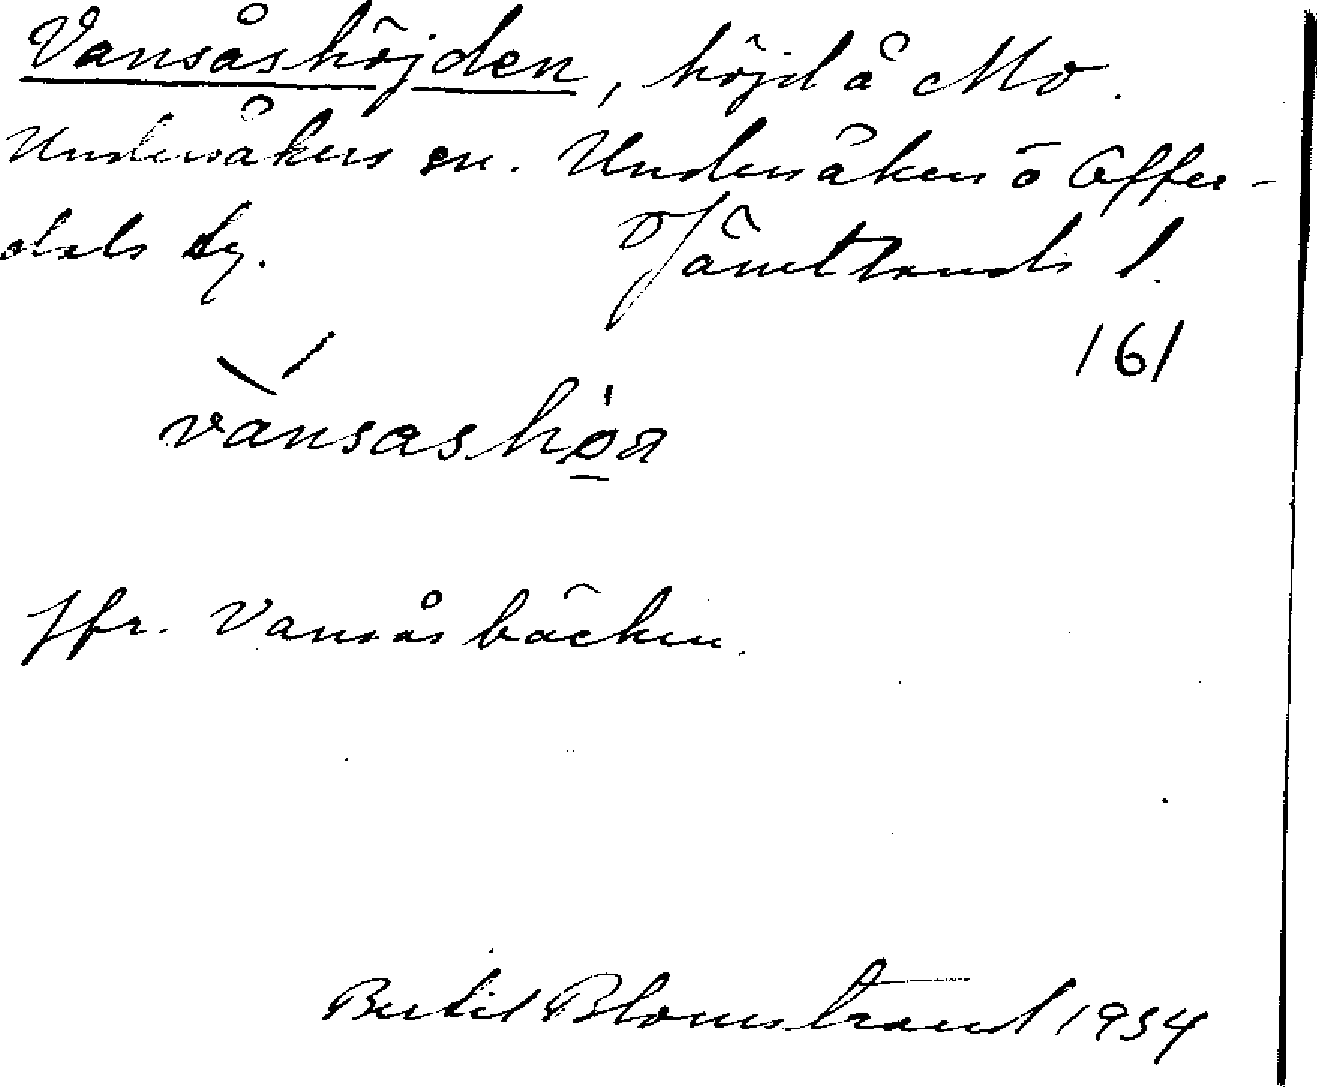 Vansåshöjden, höjd å Mo.
Undersåkers sn. Undersåkers o Offer-
dals tg. Jämtlands l.
161
vansashöa
Jfr. Vansåsbäcken.
Bertil Blomstrand 1934